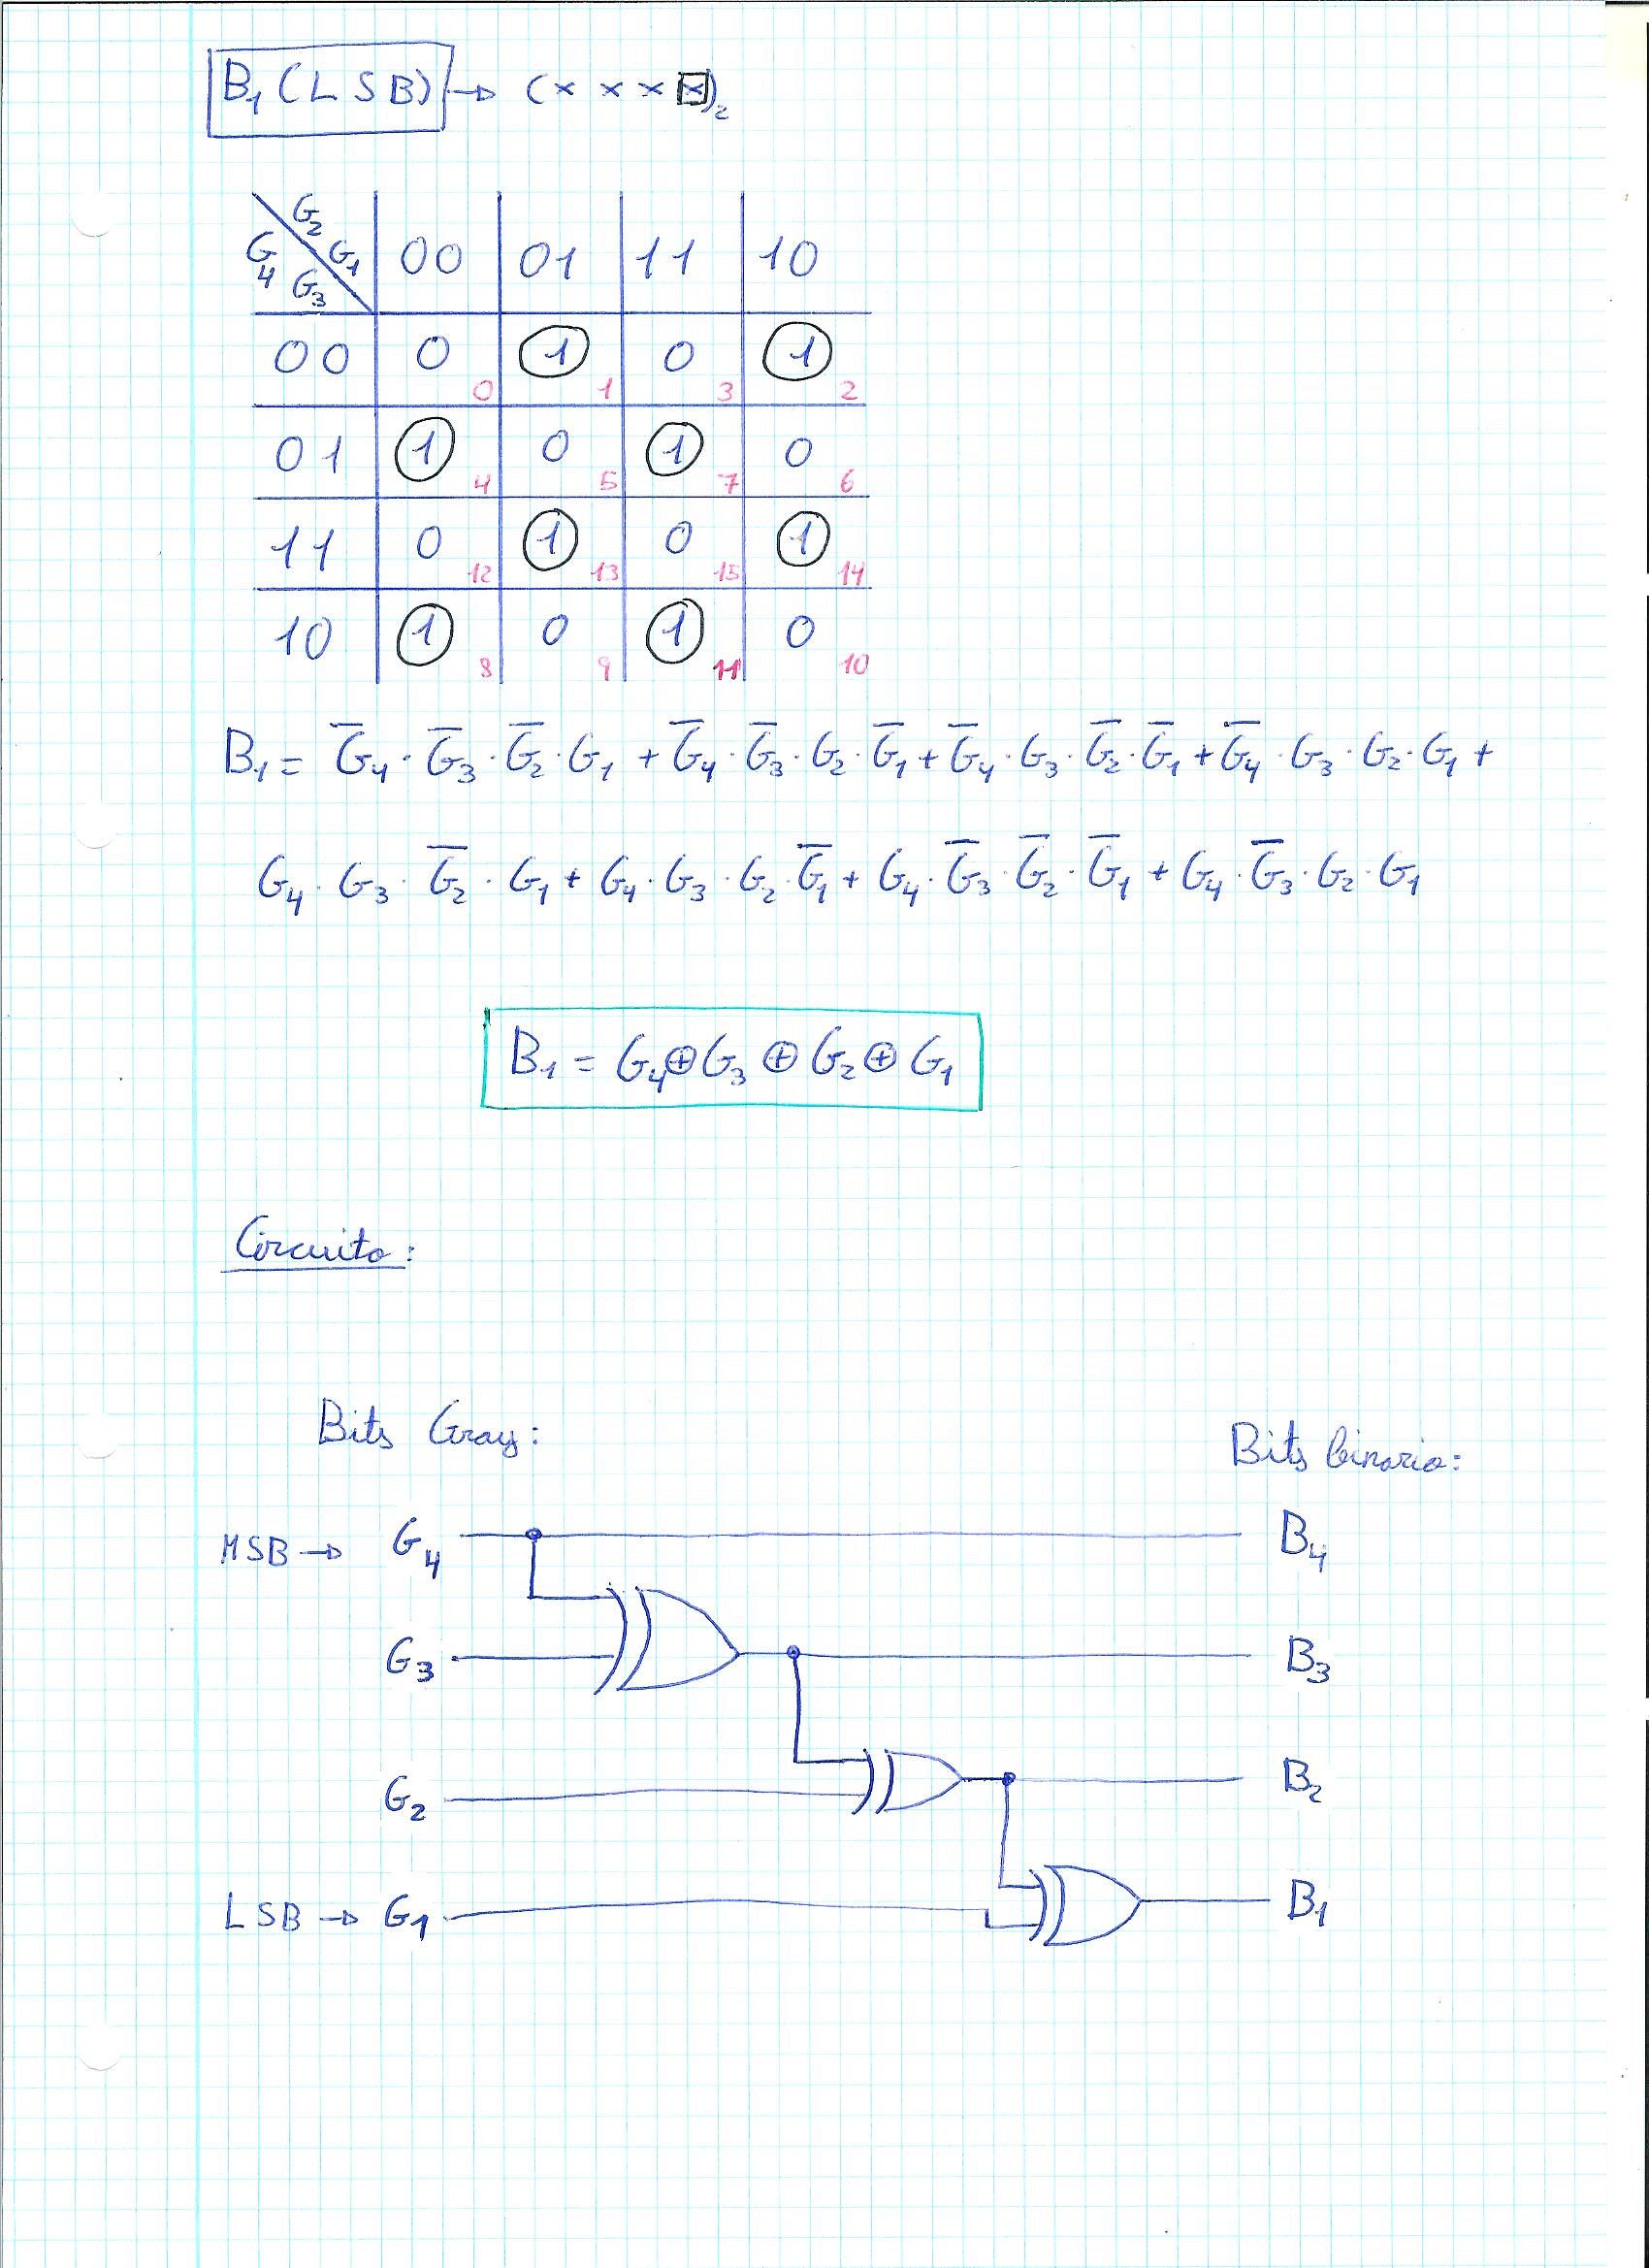 B₁ (LSB) → (x x x x)₂
G₂ G₁ G₄ G₃ 00 01 11 10
00 0 0 1 1 0 3 1 2
01 1 4 0 5 1 7 0 6
11 0 12 1 13 0 15 1 14
10 1 8 0 9 1 11 0 10
B₁ = G̅₄ · G̅₃ · G̅₂ · G₁ + G̅₄ · G̅₃ · G₂ · G̅₁ + G̅₄ · G₃ · G̅₂ · G̅₁ + G̅₄ · G₃ · G₂ · G₁ +
G₄ · G₃ · G̅₂ · G₁ + G₄ · G₃ · G₂ · G̅₁ + G₄ · G̅₃ · G̅₂ · G̅₁ + G₄ · G̅₃ · G₂ · G₁
B₁ = G₄ ⊕ G₃ ⊕ G₂ ⊕ G₁
Circuito:
Bits Gray: Bits binario:
MSB → G₄ B₄
G₃ B₃
G₂ B₂
LSB → G₁ B₁